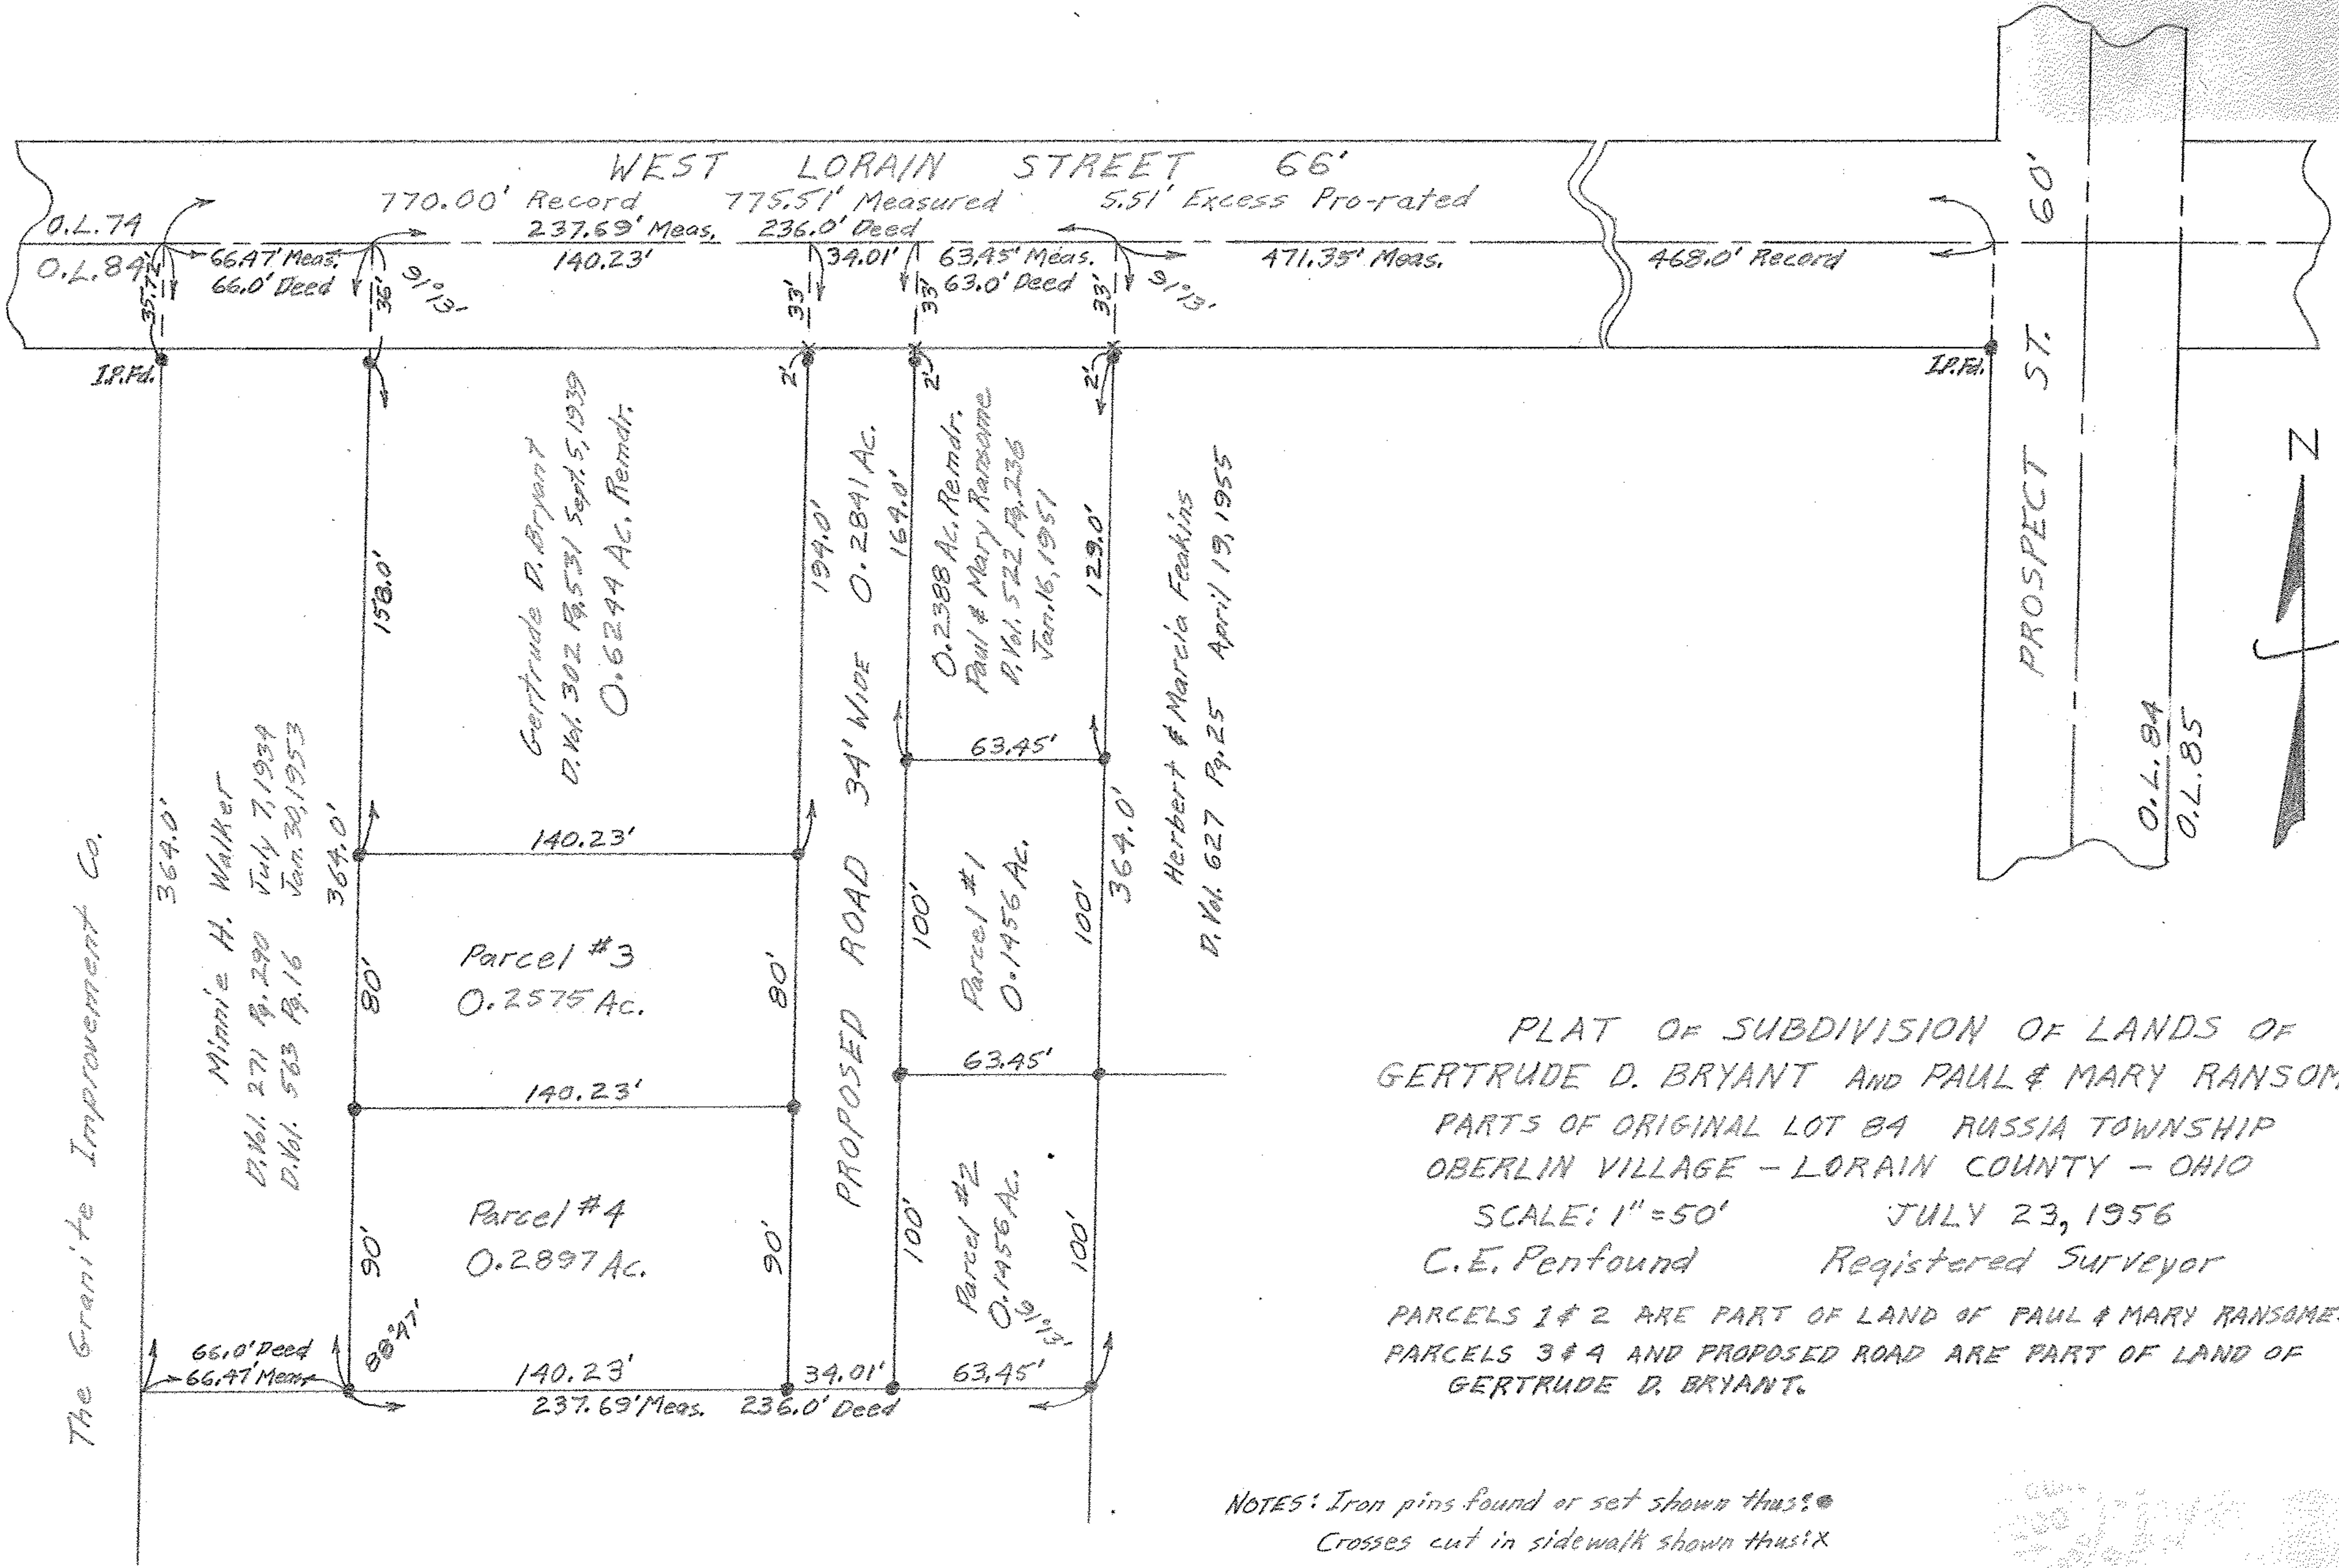 WEST LORAIN STREET 66'
770.00' Record 775.51' Measured 5.51' Excess Pro-rated
237.69' Meas. 236.0' Deed
O.L.74
O.L.84
66.47' Meas.
66.0' Deed
140.23'
34.01'
63.45' Meas.
63.0' Deed
471.35' Meas.
468.0' Record
35.72'
36'
91°13'
33'
33'
33'
91°13'
I.P.Fd.
2'
2'
2'
I.P.Fd.
PROSPECT ST. 60'
O.L.84
O.L.85
N
The Granite Improvement Co.
364.0'
Minnie H. Walker
D.Vol. 271 Pg.290 July 7,1934
D.Vol. 563 Pg.16 Jan.30,1953
364.0'
158.0'
Gertrude D. Bryant
D.Vol. 302 Pg.531 Sept.5,1939
0.6244 Ac. Remdr.
194.0'
PROPOSED ROAD 34' WIDE 0.2841 Ac.
164.0'
0.2388 Ac. Remdr.
Paul & Mary Ransome
D.Vol. 522 Pg.236
Jan.16,1951
129.0'
Herbert & Marcia Feakins
D.Vol. 627 Pg.25 April 19,1955
63.45'
140.23'
80'
Parcel #3
0.2575 Ac.
80'
100'
Parcel #1
0.1456 Ac.
100'
364.0'
63.45'
140.23'
90'
Parcel #4
0.2897 Ac.
90'
100'
Parcel #2
0.1456 Ac.
100'
91°13'
88°47'
66.0' Deed
66.47' Meas.
140.23'
34.01'
63.45'
237.69' Meas. 236.0' Deed
PLAT OF SUBDIVISION OF LANDS OF
GERTRUDE D. BRYANT AND PAUL & MARY RANSOM
PARTS OF ORIGINAL LOT 84 RUSSIA TOWNSHIP
OBERLIN VILLAGE - LORAIN COUNTY - OHIO
SCALE: 1"=50' JULY 23, 1956
C.E. Penfound Registered Surveyor
PARCELS 1 & 2 ARE PART OF LAND OF PAUL & MARY RANSOME.
PARCELS 3 & 4 AND PROPOSED ROAD ARE PART OF LAND OF
GERTRUDE D. BRYANT.
NOTES: Iron pins found or set shown thus:●
Crosses cut in sidewalk shown thus:X